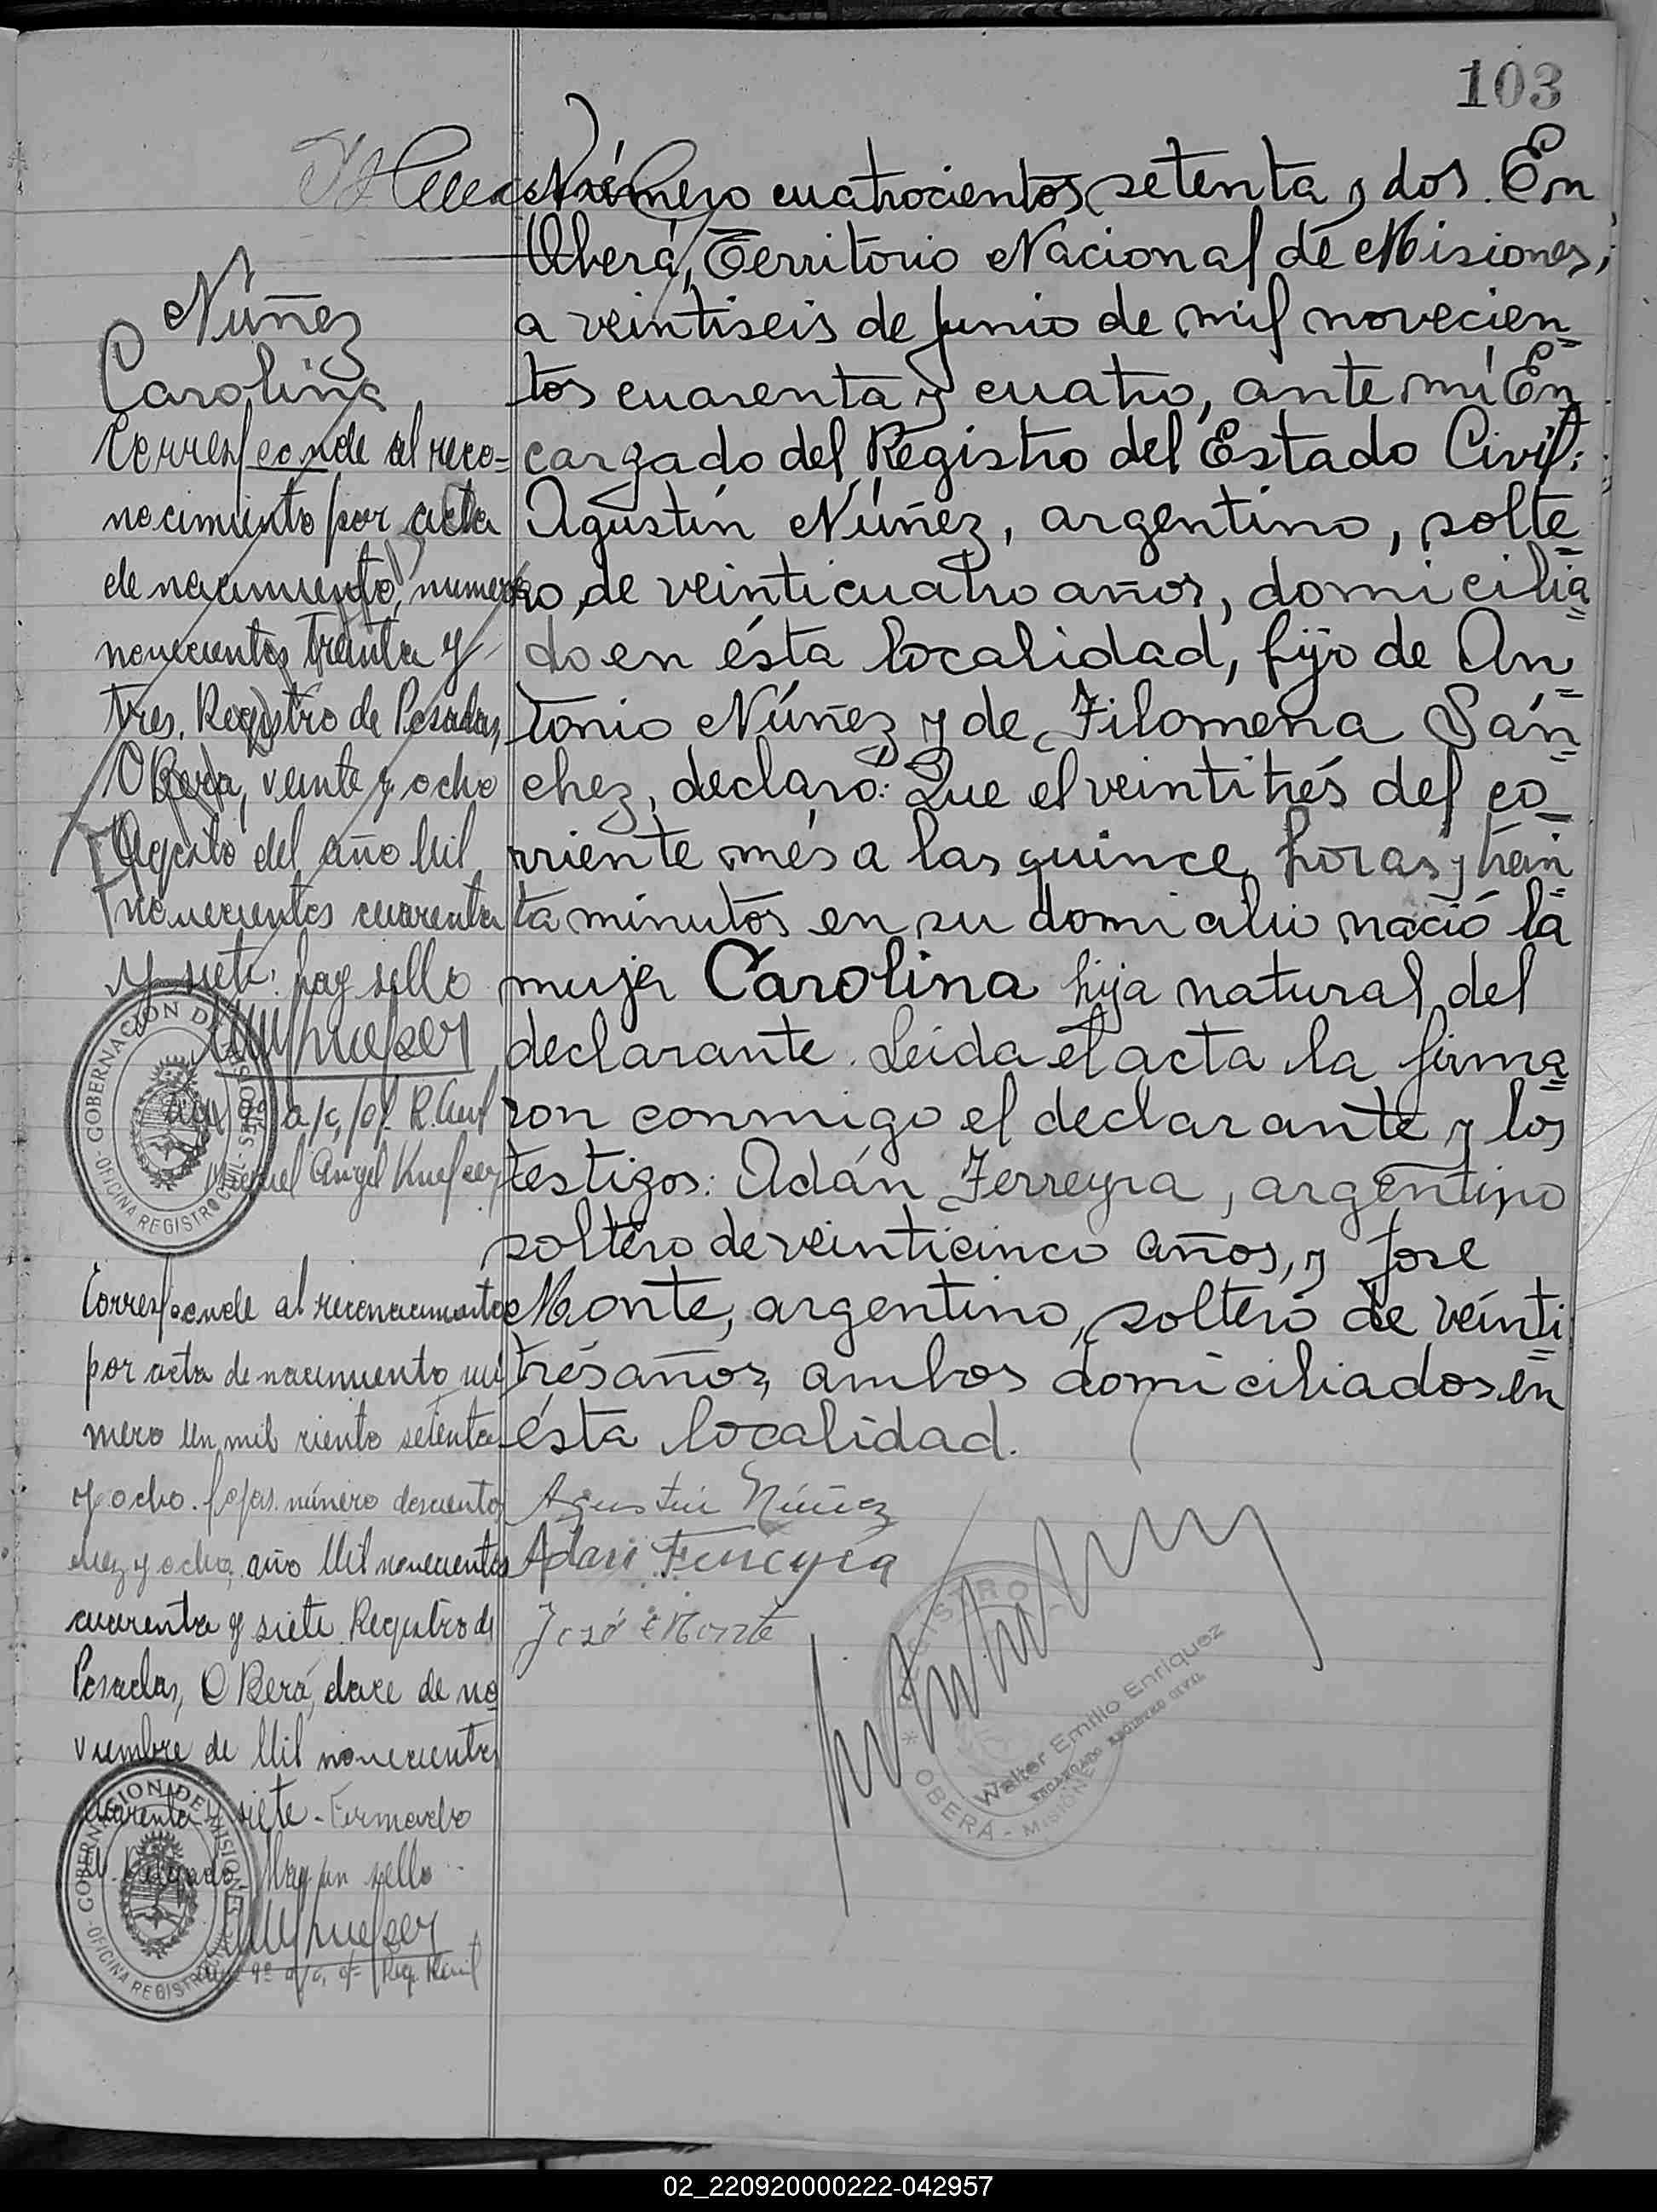 103
Número cuatrocientos setenta y dos. En
Oberá, Territorio Nacional de Misiones,
a veintiseis de Junio de mil novecien=
tos cuarenta y cuatro, ante mí En
cargado del Registro del Estado Civil:
Agustín Núñez, argentino, solte=
ro, de veinticuatro años, domicilia=
do en ésta localidad, hijo de An=
tonio Núñez y de Filomena Sán=
chez, declaró: Que el veintitrés del co=
rriente més a las quince horas y trein=
ta minutos en su domicilio nació la
mujer Carolina hija natural del
declarante. Leida el acta la firma=
ron conmigo el declarante y los
testigos: Adán Ferreyra, argentino
soltero de veinticinco años, y José
Monte, argentino, soltero de veinti=
trés años, ambos domiciliados en
ésta localidad.
Agustín Núñez
Adan Ferreyra
José Monte
REGISTRO
OBERÁ - MISIONES
Walter Emilio Enriquez
ENCARGADO REGISTRO CIVIL
Núñez
Carolina
Corresponde al reco=
nocimiento por acta
de nacimiento, numero
novecientos treinta y
tres. Registro de Posadas,
OBera, veinte y ocho
Agosto del año Mil
novecientos cuarenta
y siete: hay sello
a/c. of. R. Civil
Miguel Angel
GOBERNACION DE MISIONES
OFICINA REGISTRO CIVIL
Corresponde al reconocimiento
por acta de nacimiento nú
mero un mil ciento setenta
y ocho. fojas. número doscientos
diez y ocho, año Mil novecientos
cuarenta y siete. Registro de
Posadas, OBerá, doce de no
viembre de Mil novecientos
cuarenta y siete - Firmado
N. Delgado. Hay un sello
a/c. of. Reg. Civil
GOBERNACION DE MISIONES
OFICINA REGISTRO CIVIL
02_220920000222-042957